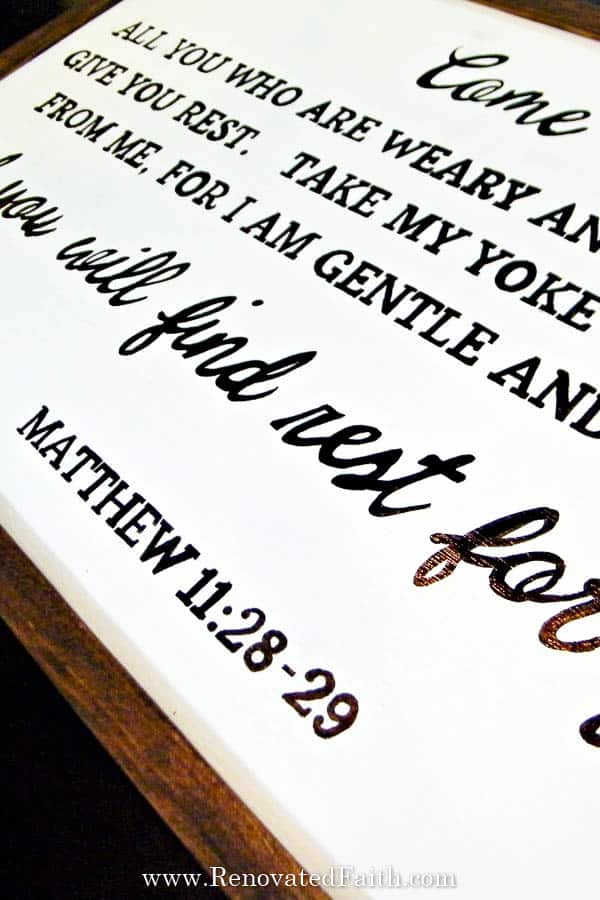 Come
ALL YOU WHO ARE WEARY AN
GIVE YOU REST. TAKE MY YOKE
FROM ME, FOR I AM GENTLE AND
you will find rest for
MATTHEW 11:28-29
www.RenovatedFaith.com